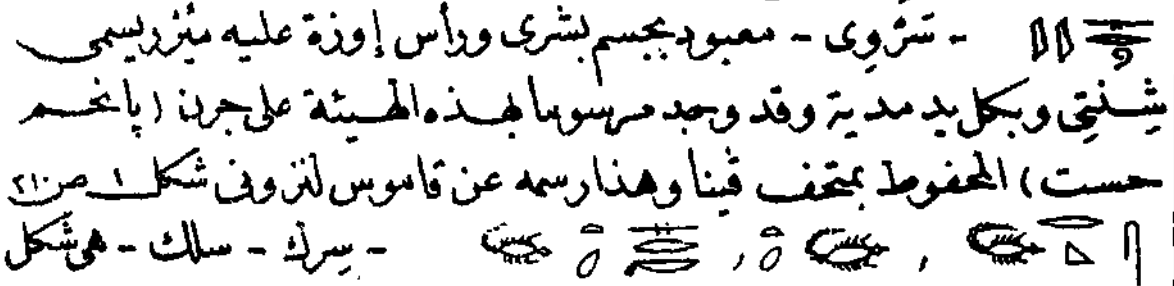 - سَثْرِوِى - معبود بجسم بشرى ورأس إوزة عليه مئزر يسمى
شِنْتِى وبكل يد مدية وقد وجد مرسوما بهذه الهيئة على جرن (پانحسم
حست) المحفوظ بمتحف ڤينا وهذا رسمه عن قاموس لنزونى شكل ١ ص ٢١٠
- سِرك - سلك - هى شكل